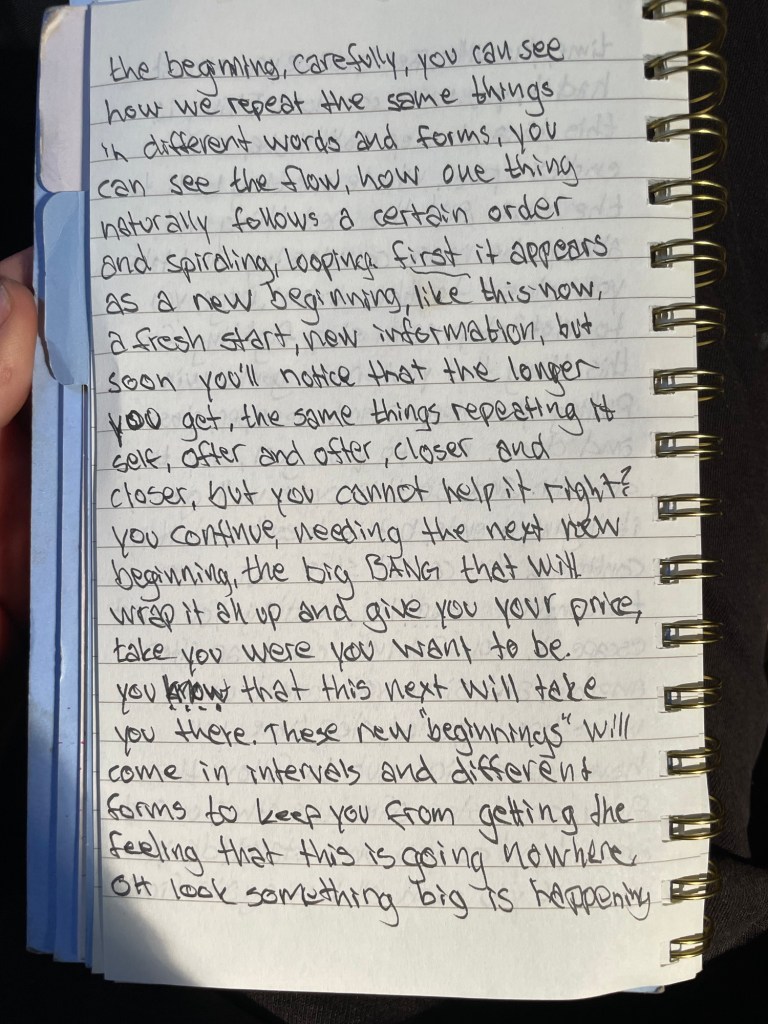 the beginning, carefully, you can see
how we repeat the same things
in different words and forms, you
can see the flow, how one thing
naturally follows a certain order
and spiraling, looping. first it appears
as a new beginning, like this now,
a fresh start, new information, but
soon you'll notice that the longer
you get, the same things repeating it
self, ofter and ofter, closer and
closer, but you cannot help it right?
you continue, needing the next new
beginning, the big BANG that will
wrap it all up and give you your price,
take you were you want to be.
you know that this next will take
you there. These new "beginnings" will
come in intervals and different
forms to keep you from getting the
feeling that this is going nowhere,
OH look something big is happening